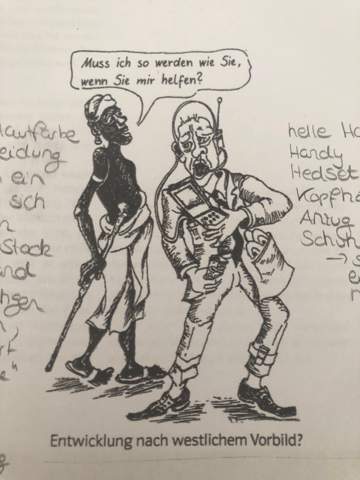 Muss ich so werden wie Sie,
wenn Sie mir helfen?
Hautfarbe
eidung
ein
sich
Stock
helle Ha
Handy
Hedset
Kopfh
Anzug
Schuh
Entwicklung nach westlichem Vorbild?